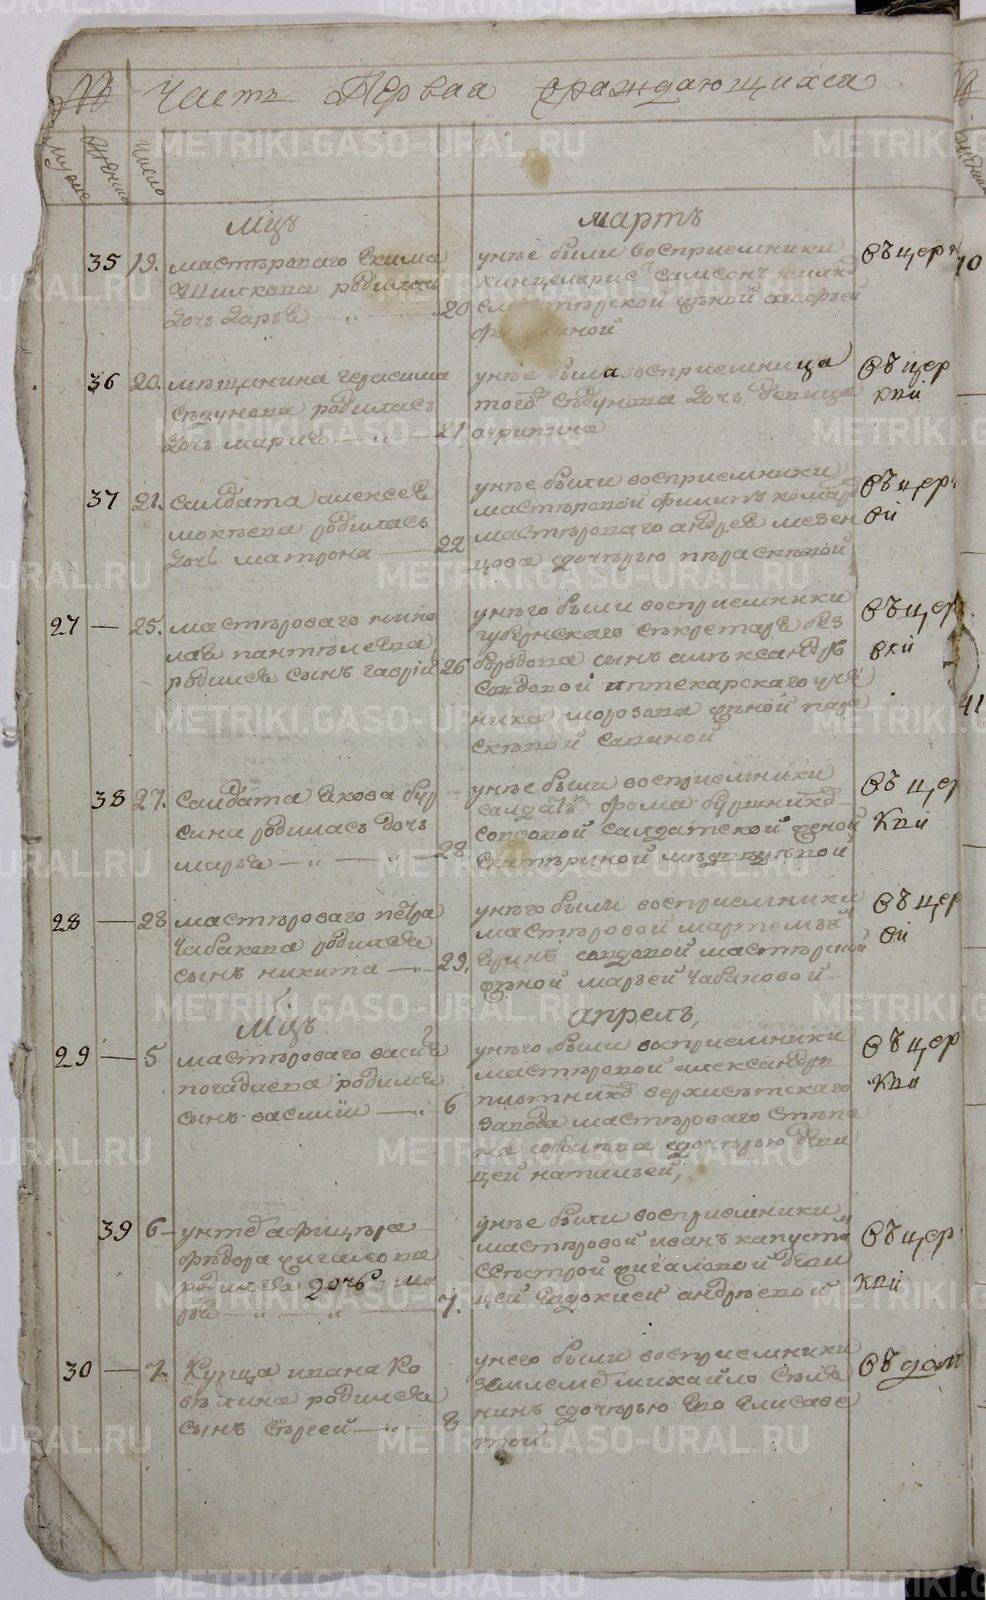 METRIKI.GASO-URAL.RU
Часть Первая ораждающихся
мужескъ женска число
мцъ мартъ
35 19. мастероваго Екима
родилась
дочь дарья 20
унѣе были восприемники
канцеларисъ самсонъ
мастерской женой агафьей
въ цер
36 20. мещанина герасима
седунова родилась
дочь мария 21
унѣе была восприемница
того седунова дочь девица
агрипина
въ цер
кви
37 21. салдата алексея
мокеева родилась
дочь матрона 22
унѣе были восприемники
мастеровой филипъ
мастероваго андрея мезен
цова здочерью параскевой
въ цер
ви
27 25. мастероваго нико
лая пантелеева
родился сынъ гаврiй 26
унѣго были восприемники
губернскаго секретаря без
бородова сынъ алѣксандръ
соидовой аптекарскаго уче
ника морозова женой пара
скевой савиной
въ цер
вки
38 27. салдата Якова бур
сина родилась дочь
марья 28
унѣе были восприемники
салдатъ фома
соидовой салдатской женой
Екатериной
въ цер
кви
28 28 мастероваго петра
Чабакова родился
сынъ никита 29.
унѣго были восприемники
мастеровой мартемьянъ
соидовой мастерской
женой марьей Чабановой
въ цер
ви
мцъ апрель,
29 5 мастероваго васил
погадаева родился
сынъ василiи 6
унѣго были восприемники
мастеровой алексанdръ
плотниковъ верхисетскаго
завода мастероваго степа
на здочерью деви
цей натальей,
въ цер
кви
39 6 унтеръ афицера
федора чигалова
родился дочь ма
рья 7.
унѣе были восприемники
мастеровой иванъ капусти
сестрой чигаловой деви
цей Евдокией андреевой
въ цер
кви
30 7. Купца ивана Ко
родился
сынъ сергей 8
унего были восприемники
землемеръ михайло
нинъ здочерью Ево Елисаве
той
въ дом
10
41